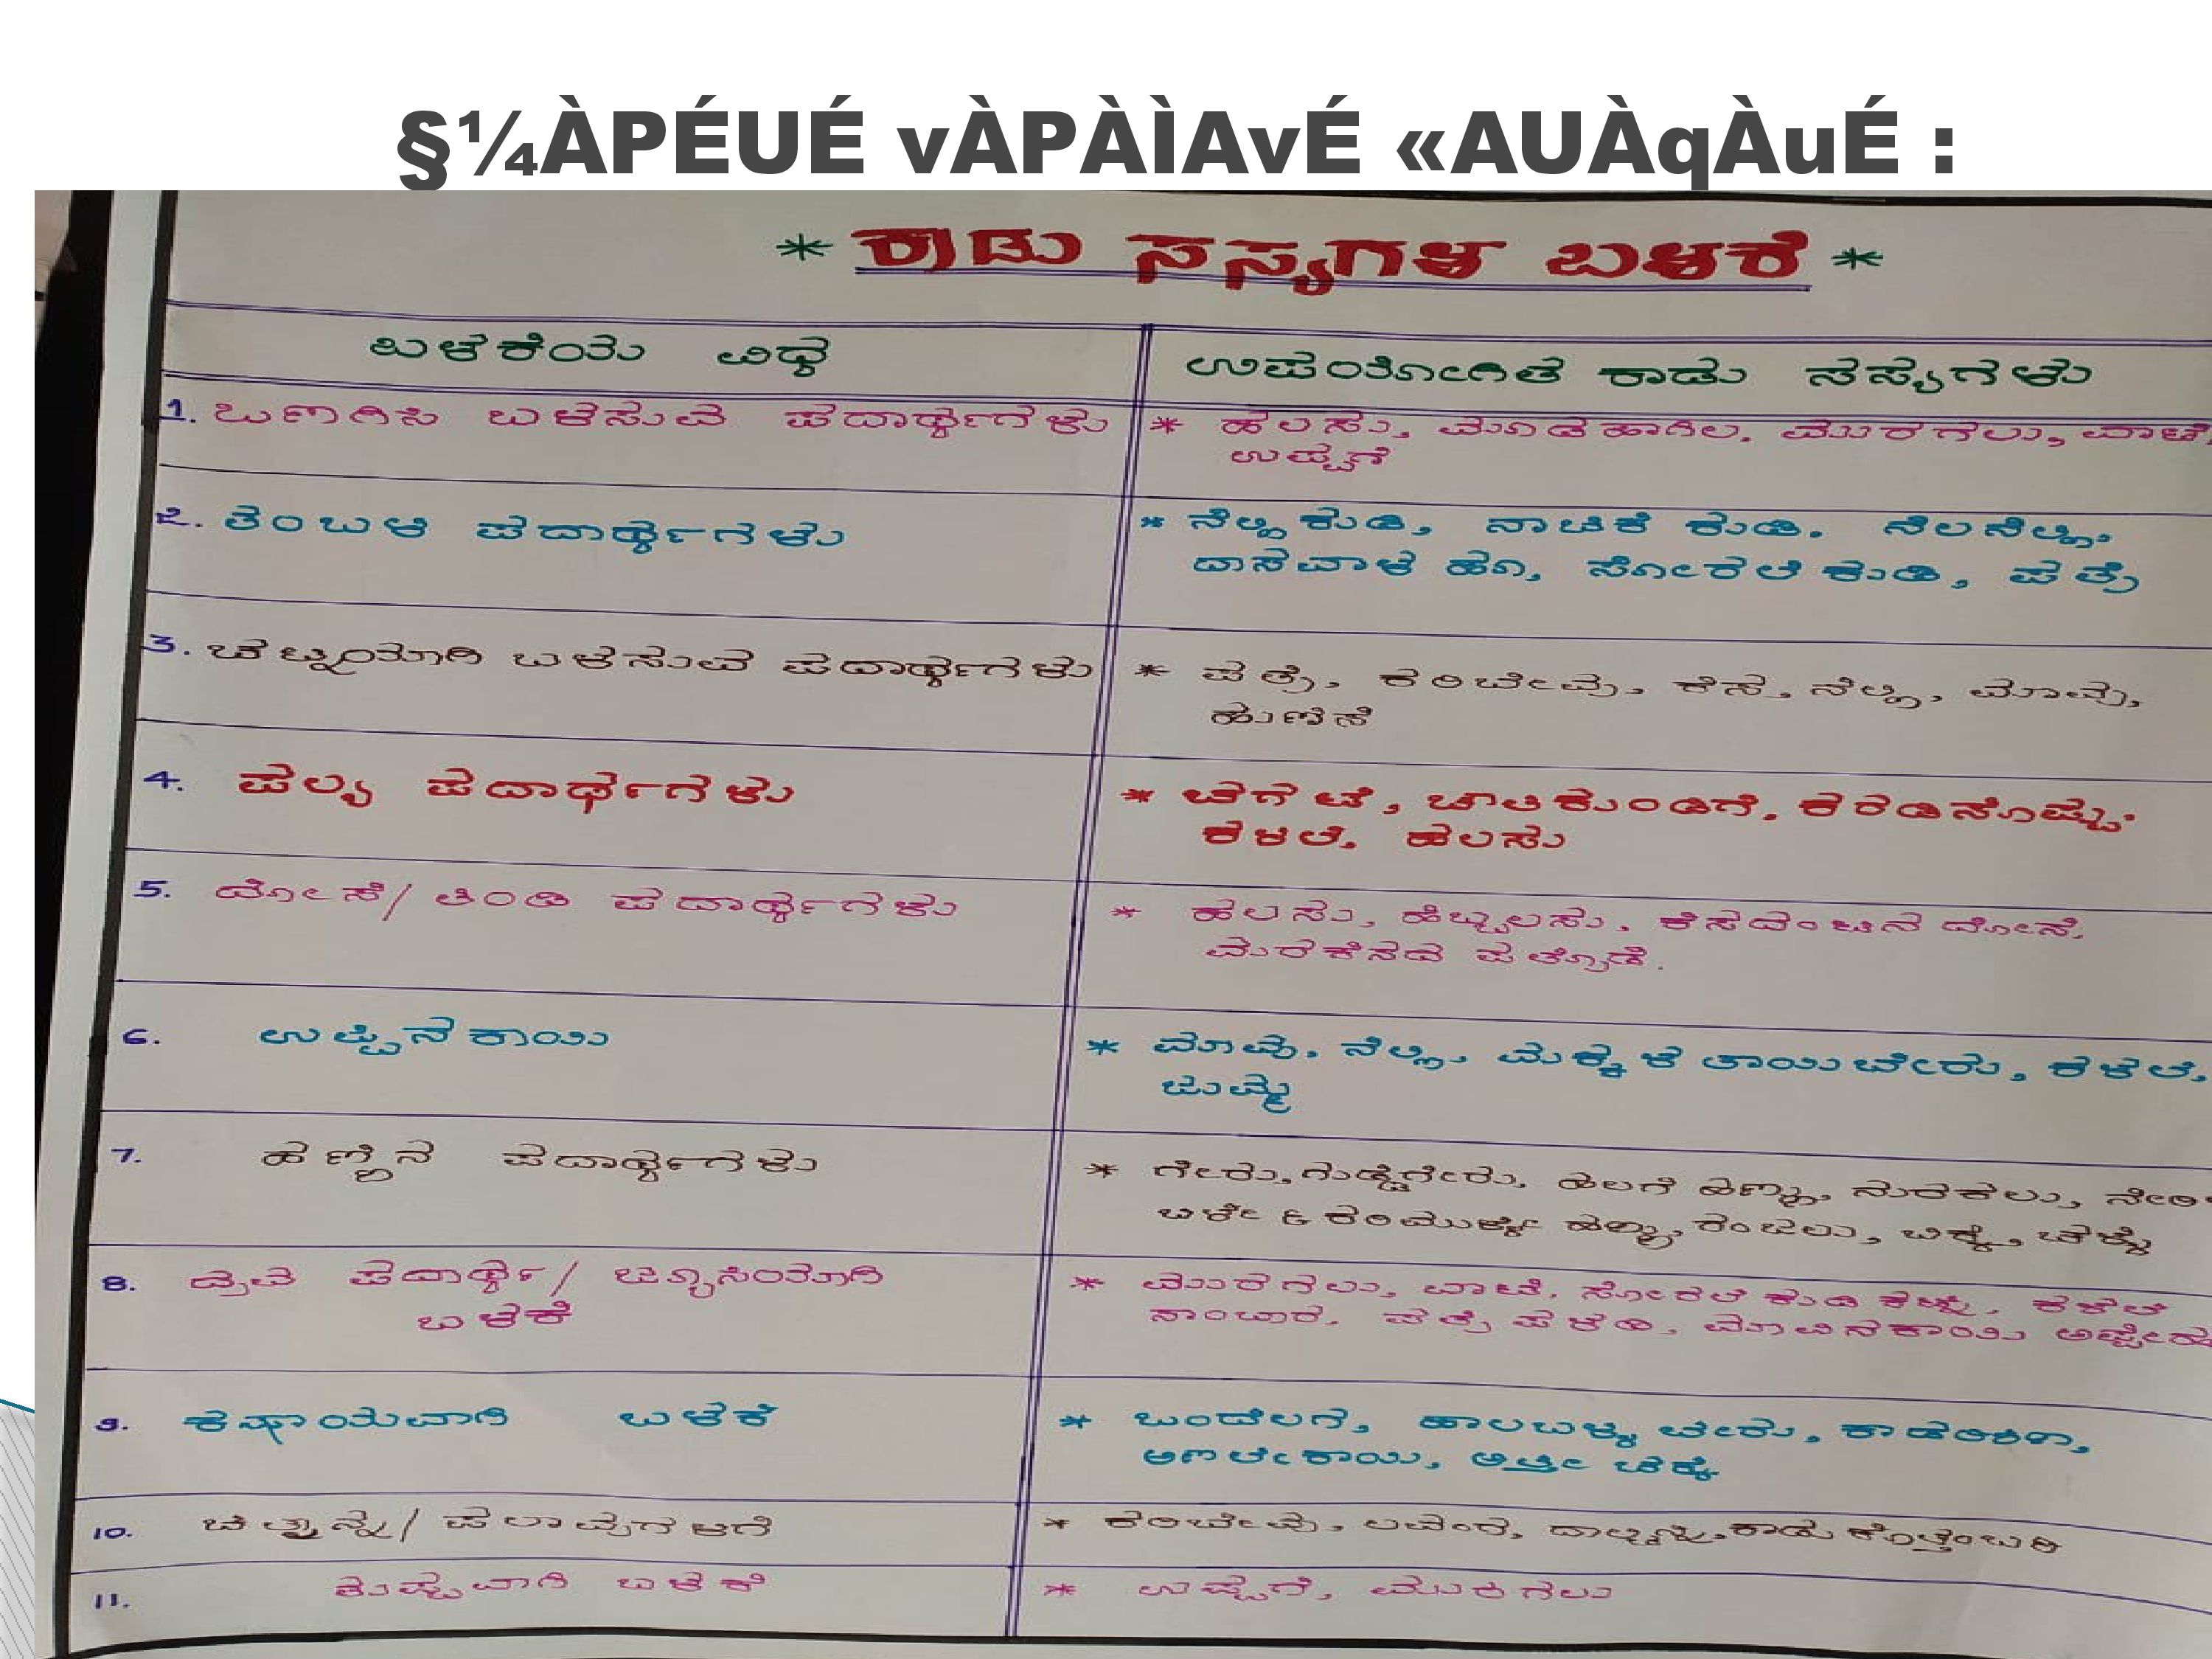 §¼ÀPÉUÉ vÀPÀÌAvÉ «AUÀqÀuÉ :
* ಕಾಡು ಸಸ್ಯಗಳ ಬಳಕೆ *
ಬಳಕೆಯ ವಿಧ ಉಪಯೋಗಿತ ಕಾಡು ಸಸ್ಯಗಳು
1. ಒಣಗಿಸಿ ಬಳಸುವ ಪದಾರ್ಥಗಳು * ಹಲಸು, ಮಾಡಹಾಗಿಲ, ಮುರಗಲು, ವಾಟೆ,
ಉಪ್ಪಗೆ
2. ತಂಬಳಿ ಪದಾರ್ಥಗಳು * ನೆಲ್ಲಿ ಕುಡಿ, ನಾಚಿಕೆ ಕುಡಿ, ನೆಲನೆಲ್ಲಿ,
ದಾಸವಾಳ ಹೂ, ಸೋರಲೆ ಕುಡಿ, ಪತ್ರೆ
3. ಚಟ್ನಿಯಾಗಿ ಬಳಸುವ ಪದಾರ್ಥಗಳು * ಪತ್ರೆ, ಕರಿಬೇವು, ಕೆಸ, ನೆಲ್ಲಿ, ಮಾವು,
ಹುಣಸೆ
4. ಪಲ್ಯ ಪದಾರ್ಥಗಳು * ಚಗಟೆ, ಕರಡಿಸೊಪ್ಪು,
ಕಳಲೆ, ಹಲಸು
5. ದೋಸೆ/ ತಿಂಡಿ ಪದಾರ್ಥಗಳು * ಹಲಸು, ಹೆಬ್ಬಲಸು, ಕೆಸದಂಟಿನ ದೋಸೆ,
ಮರಕೆಸದ ಪತ್ರೊಡೆ.
6. ಉಪ್ಪಿನಕಾಯಿ * ಮಾವು, ನೆಲ್ಲಿ, ಮಕ್ಕಳ ತಾಯಿಬೇರು, ಕಳಲೆ,
ಜುಮ್ಮ
7. ಹಣ್ಣಿನ ಪದಾರ್ಥಗಳು * ಗೇರು, ಗುಡ್ಡೆಗೇರು, ಹಲಗೆ ಹಣ್ಣು, ನುರಕಲು,
ಹಣ್ಣು, ರಂಜಲು, ಬಿಕ್ಕೆ,
8. ದ್ರವ ಪದಾರ್ಥ/ ಜ್ಯೂಸಿಯಾಗಿ * ಮುರಗಲು, ವಾಟೆ, ಸೋರಲೆ ಕುಡಿ ಕಟ್ನೆ, ಕಳಲೆ
ಬಳಕೆ ಸಾಂಬಾರ, ಪತ್ರೆ ಪಳದಿ, ಮಾವಿನಕಾಯಿ
9. ಕಷಾಯವಾಗಿ ಬಳಕೆ * ಒಂದೆಲಗ, ಹಾಲಬಳ್ಳಿ ಬೇರು, ಕಾಡರಿಶಿಣ,
ಅಣಲೇಕಾಯಿ, ಅತ್ತೀ ಚಕ್ಕೆ
10. ಚಿತ್ರಾನ್ನ/ ಪಲಾವುಗಳಿಗೆ * ಕರಿಬೇವು, ಲವಂಗ, ದಾಲ್ಚಿನ್ನಿ, ಕಾಡು ಕೊತ್ತಂಬರಿ
11. ತುಪ್ಪವಾಗಿ ಬಳಕೆ * ಉಪ್ಪಗೆ, ಮುರಗಲು